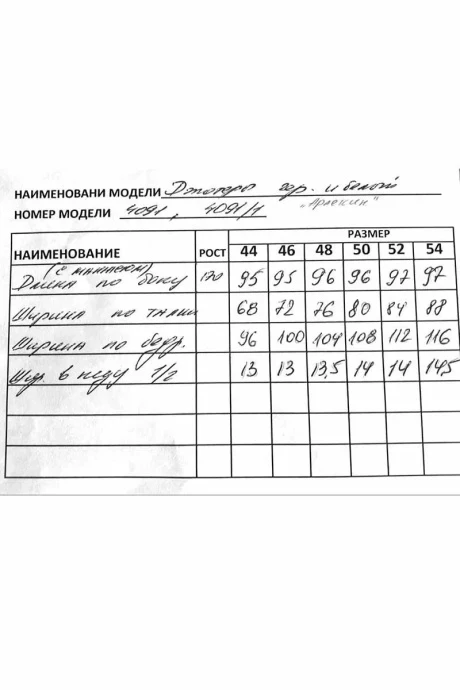 НАИМЕНОВАНИ МОДЕЛИ Джоггеры чер. и белый
НОМЕР МОДЕЛИ 4091, 4091/1 "Арлекин"
НАИМЕНОВАНИЕ РОСТ РАЗМЕР
44 46 48 50 52 54
(с манжетом)
Длина по боку 170 95 95 96 96 97 97
Ширина по талии 68 72 76 80 84 88
Ширина по бедр. 96 100 104 108 112 116
Шир. в низу 1/2 13 13 13,5 14 14 14,5